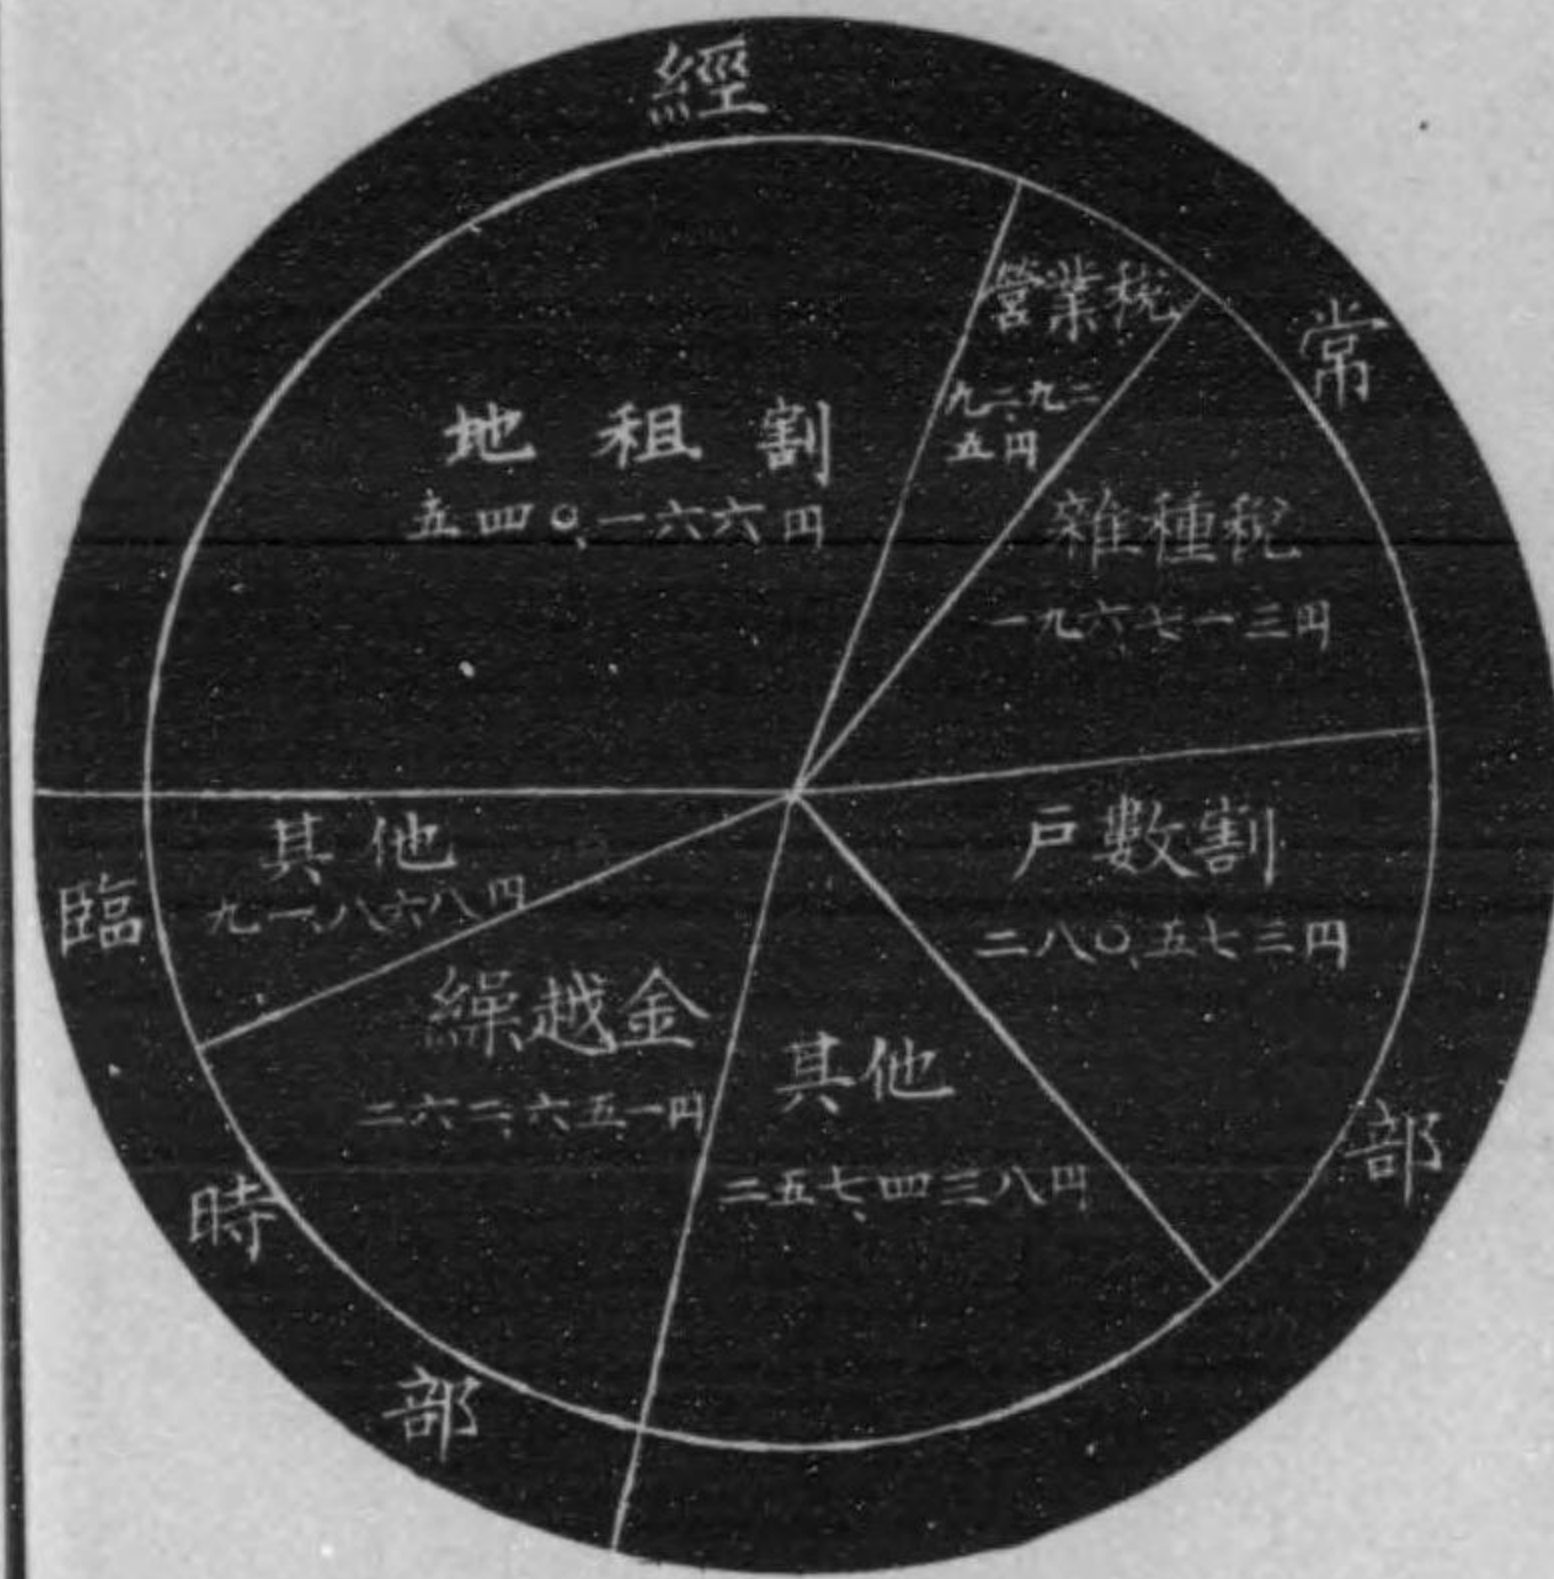 經常部
地租割
五四〇、一六六円
営業税
九二、九二
五円
雜種税
一九六七一三円
戸數割
二八〇、五七三円
其他
二五七、四三八円
臨時部
繰越金
二六二、六五一円
其他
九一、八六八円